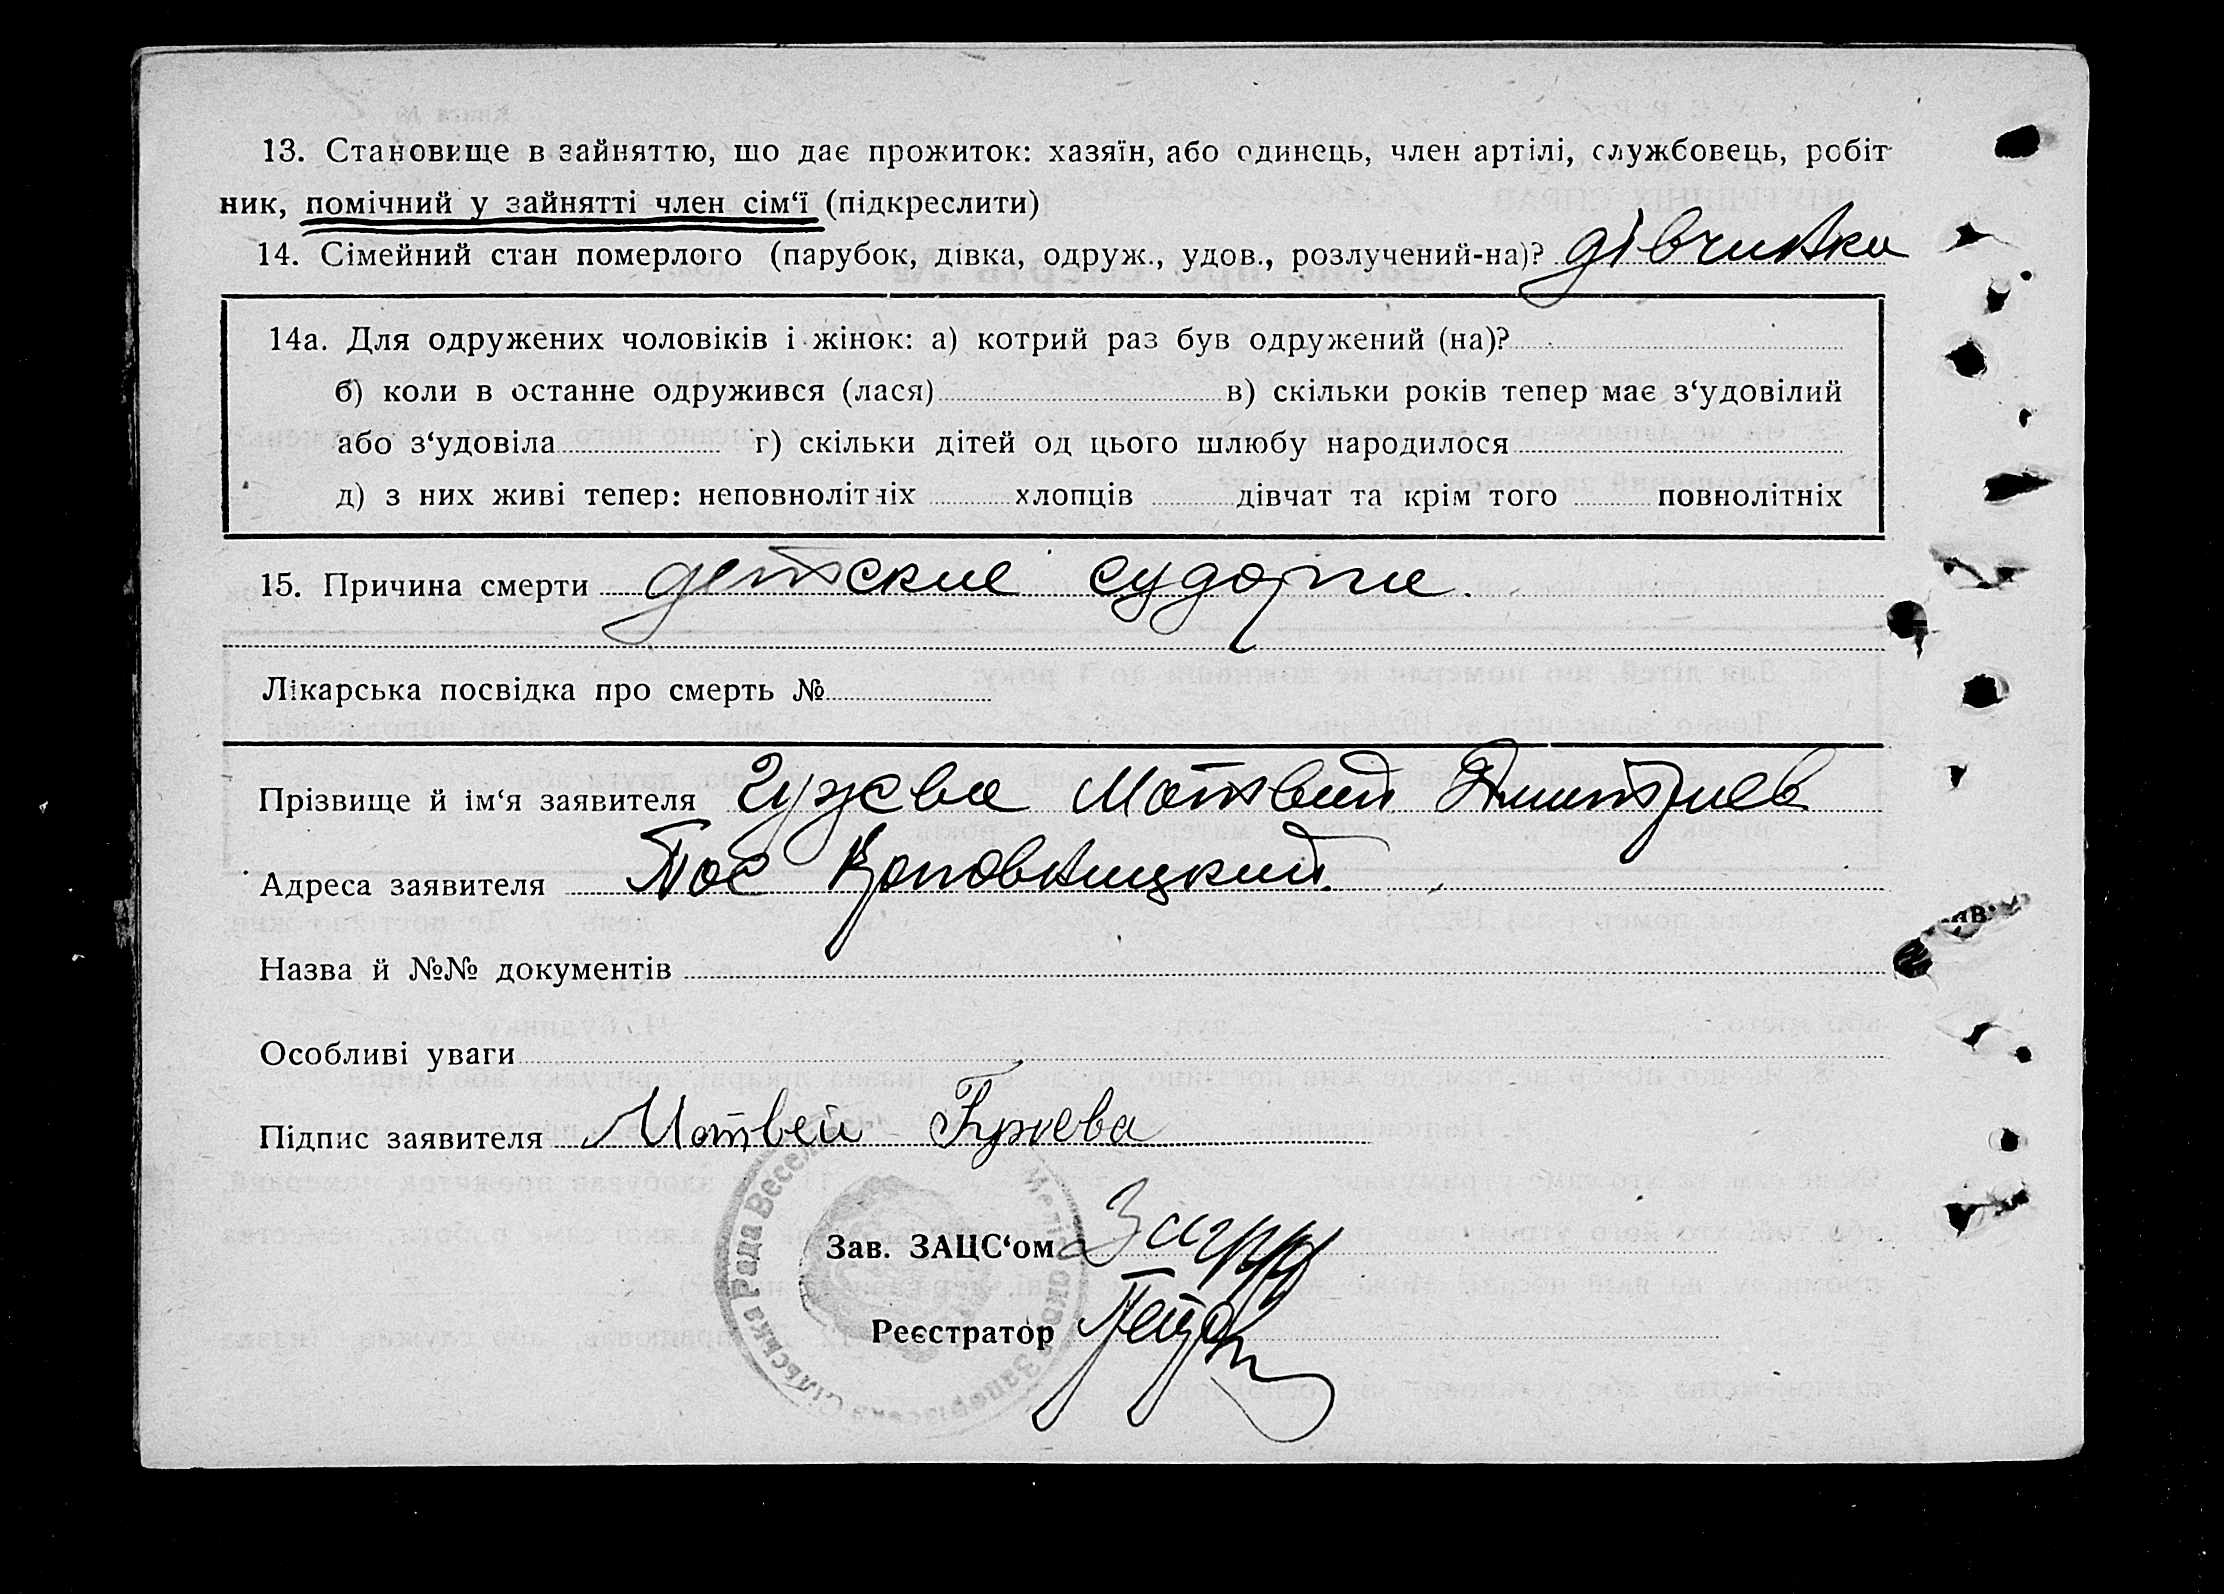 13. Становище в зайняттю, що дає прожиток: хазяїн, або одинець, член артілі, службовець, робіт
ник, помічний у зайнятті член сім‘ї (підкреслити)
14. Сімейний стан померлого (парубок, дівка, одруж., удов., розлучений-на)? дівчинка
14а. Для одружених чоловіків і жінок: а) котрий раз був одружений (на)?
б) коли в останне одружився (лася) в) скільки років тепер має з‘удовілий
або з‘удовіла г) скільки дітей од цього шлюбу народилося
д) з них живі тепер: неповнолітніх хлопців дівчат та крім того повнолітніх
15. Причина смерти детские судорги.
Лікарська посвідка про смерть №
Прізвище й ім‘я заявителя Гужева Матвий Дмитриев
Адреса заявителя Пос
Назва й №№ документів
Особливі уваги
Підпис заявителя Матвей Гужева
Зав. ЗАЦС‘ом
Реєстратор
Сільська Рада